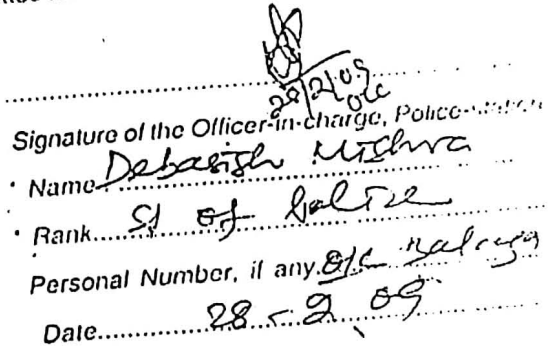 28/2/09
O/C
Signature of the Officer-in-charge, Police-station
Name Debasish Mishra
Rank SI of Police
Personal Number, if any O/C
Date 28-2-09